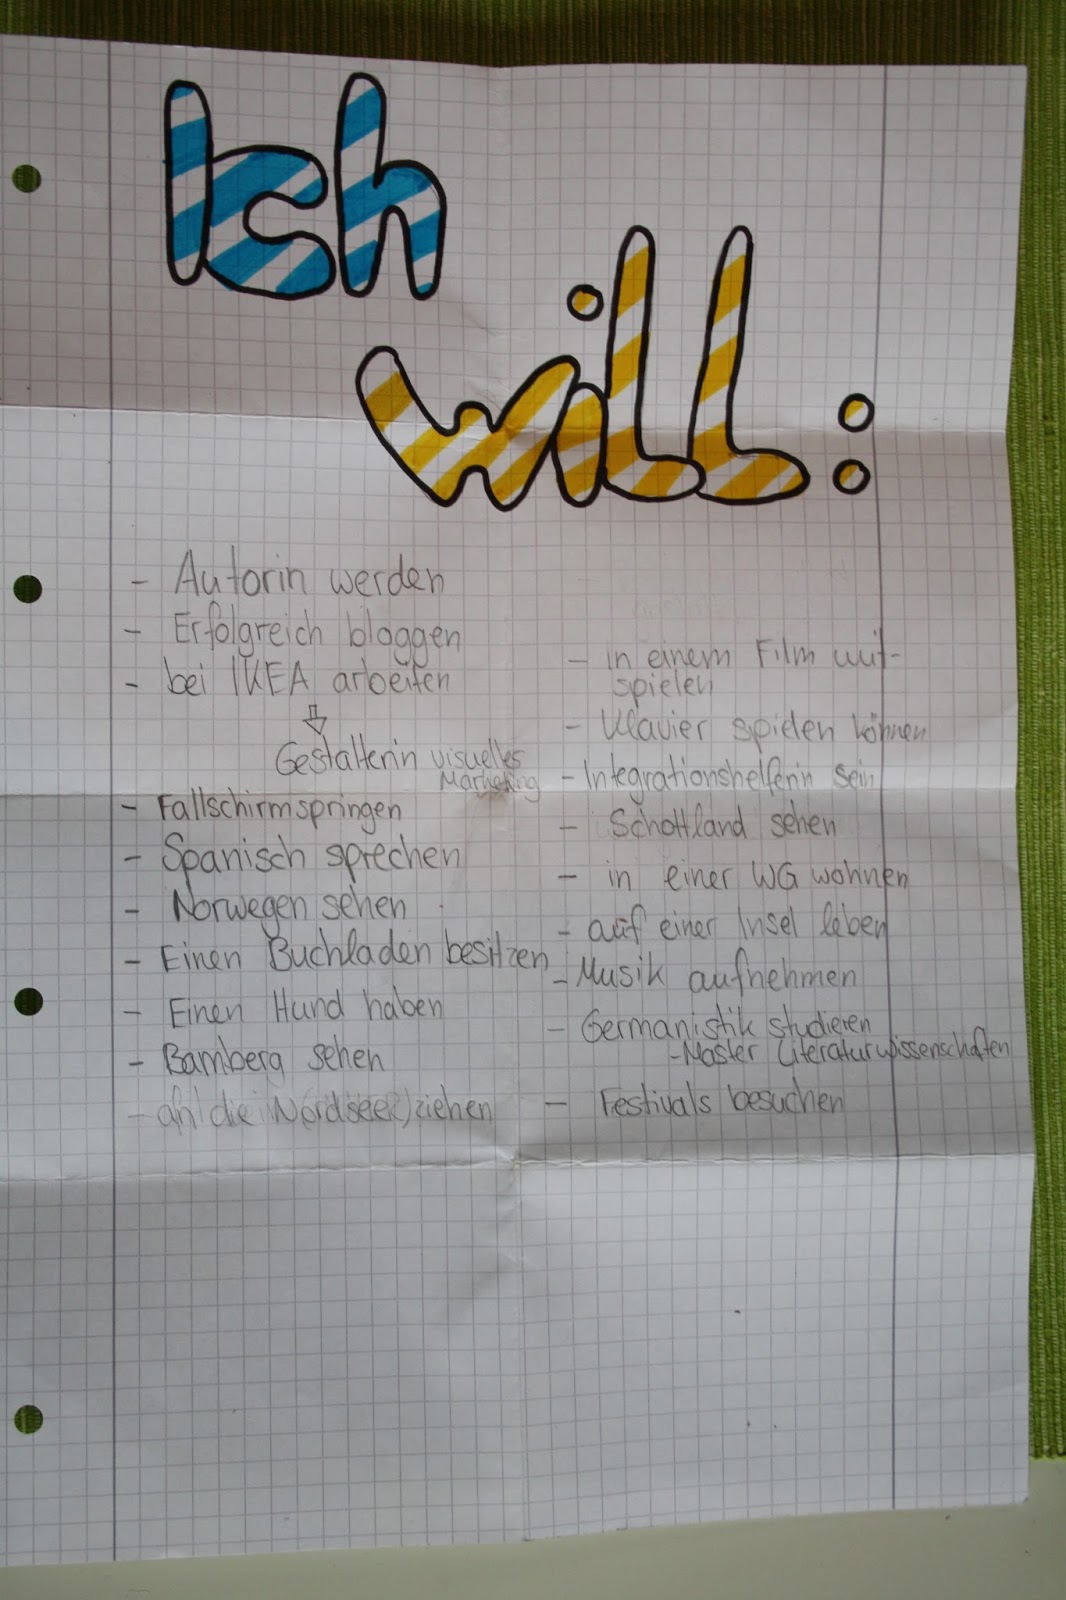 Ich
will:
- Autorin werden
- Erfolgreich bloggen
- bei IKEA arbeiten
Gestalterin visuelles
Marketing
- Fallschirmspringen
- Spanisch sprechen
- Norwegen sehen
- Einen Buchladen besitzen
- Einen Hund haben
- Bamberg sehen
- an die Nordsee ziehen
- in einem Film mit-
spielen
- Klavier spielen können
- Integrationshelferin sein
- Schottland sehen
- in einer WG wohnen
- auf einer Insel leben
- Musik aufnehmen
- Germanistik studieren
- Master Literaturwissenschaften
- Festivals besuchen